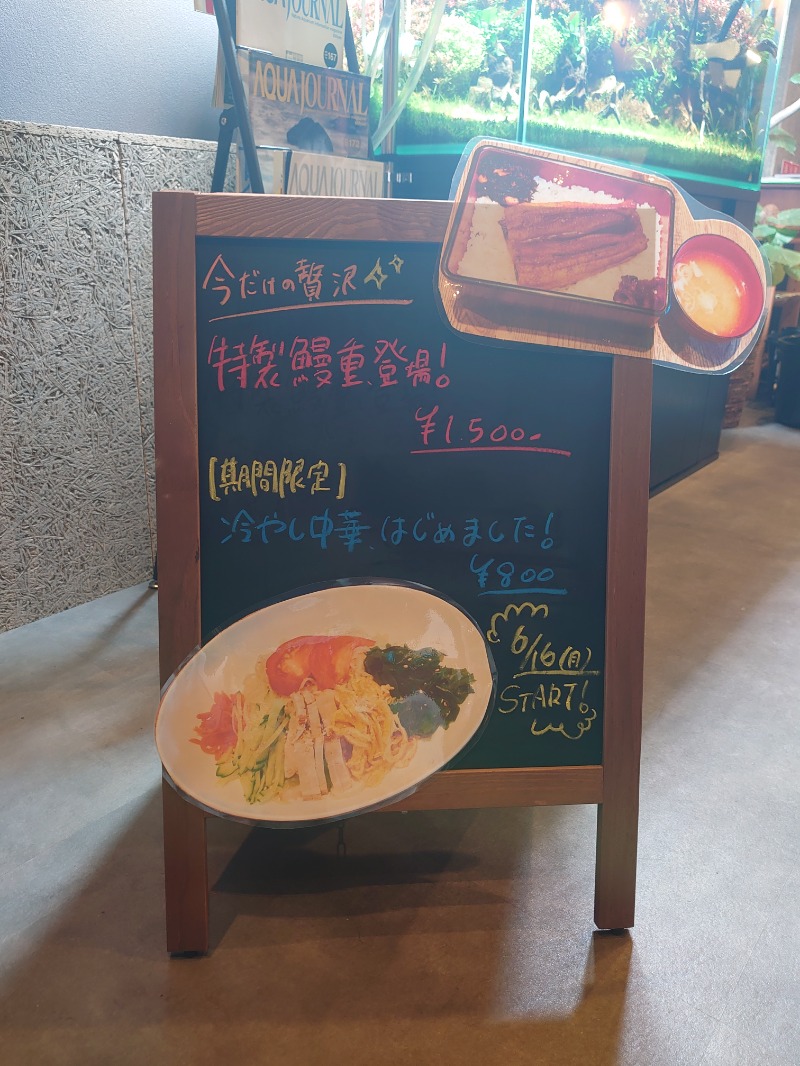 AQUA JOURNAL
167
AQUA JOURNAL
AQUA JOURNAL
今だけの贅沢
特製鰻重、登場!
¥1,500-
【期間限定】
冷やし中華、はじめました!
¥800
6/16(月)
START!